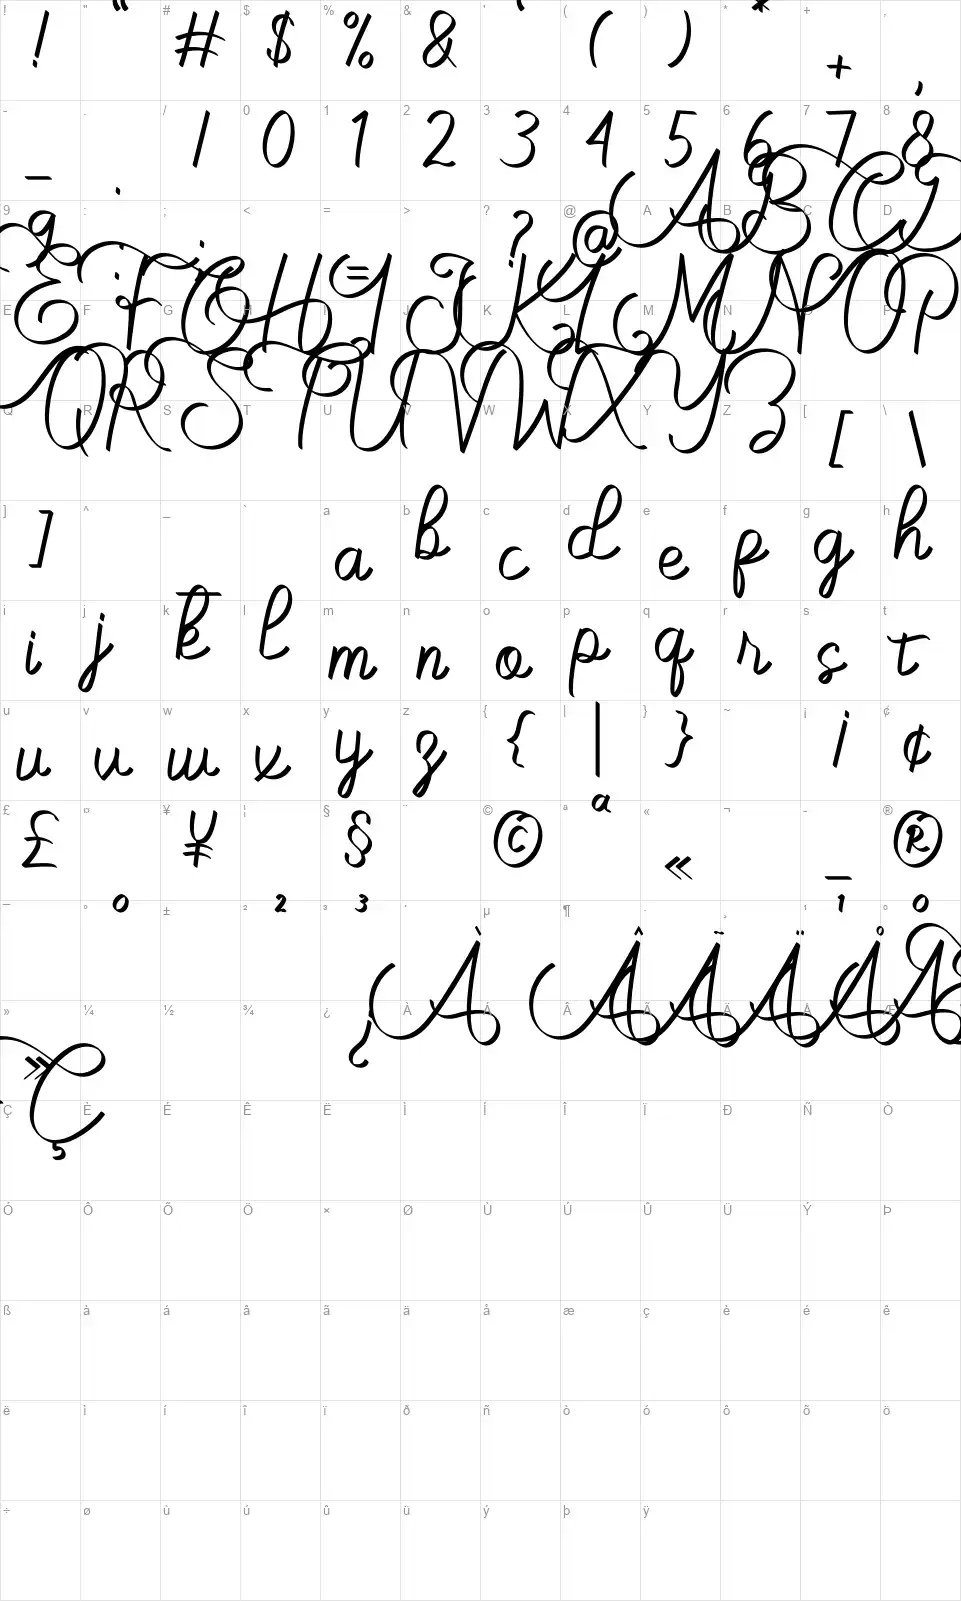 ! " # $ % & ' ( ) * + ,
! " # $ % & ' ( ) * + ,
- . / 0 1 2 3 4 5 6 7 8
- . / 0 1 2 3 4 5 6 7 8
9 : ; < = > ? @ A B C D
9 : ; = ? @ A B C D
E F G H I J K L M N O P
E F G H I J K L M N O P
Q R S T U V W X Y Z [ \
Q R S T U V W X Y Z [ \
] ^ _ ` a b c d e f g h
] _ a b c d e f g h
i j k l m n o p q r s t
i j k l m n o p q r s t
u v w x y z { | } ~ ¡ ¢
u v w x y z { | } ¡ ¢
£ ¤ ¥ ¦ § ¨ © ª « ¬ - ®
£ ¥ § © ª « - ®
¯ ° ± ² ³ ´ µ ¶ · ¸ ¹ º
° ² ³ ¹ º
» ¼ ½ ¾ ¿ À Á Â Ã Ä Å Æ
» ¿ À Â Ã Ä Å Æ
Ç È É Ê Ë Ì Í Î Ï Ð Ñ Ò
Ç
Ó Ô Õ Ö × Ø Ù Ú Û Ü Ý Þ
ß à á â ã ä å æ ç è é ê
ë ì í î ï ð ñ ò ó ô õ ö
÷ ø ù ú û ü ý þ ÿ